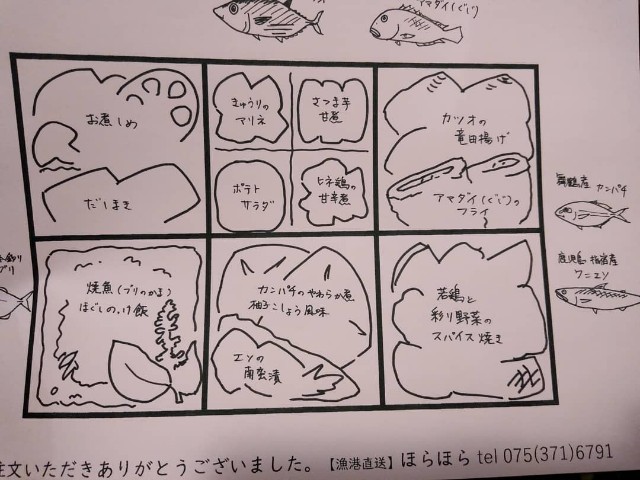 アマダイ(ぐじ)
お煮しめ
だしまき
きゅうりの
マリネ
さつま芋
甘煮
ポテト
サラダ
ヒネ鶏の
甘辛煮
カツオの
竜田揚げ
アマダイ(ぐじ)の
フライ
舞鶴産 カンパチ
釣り
ブリ
焼魚(ブリのかま)
ほぐしのっけ飯
カンパチのやわらか煮
柚子こしょう風味
エソの
南蛮漬
若鶏と
彩り野菜の
スパイス焼き
鹿児島 指宿産
ワニエソ
注文いただきありがとうございました。【漁港直送】ほらほら tel 075(371)6791